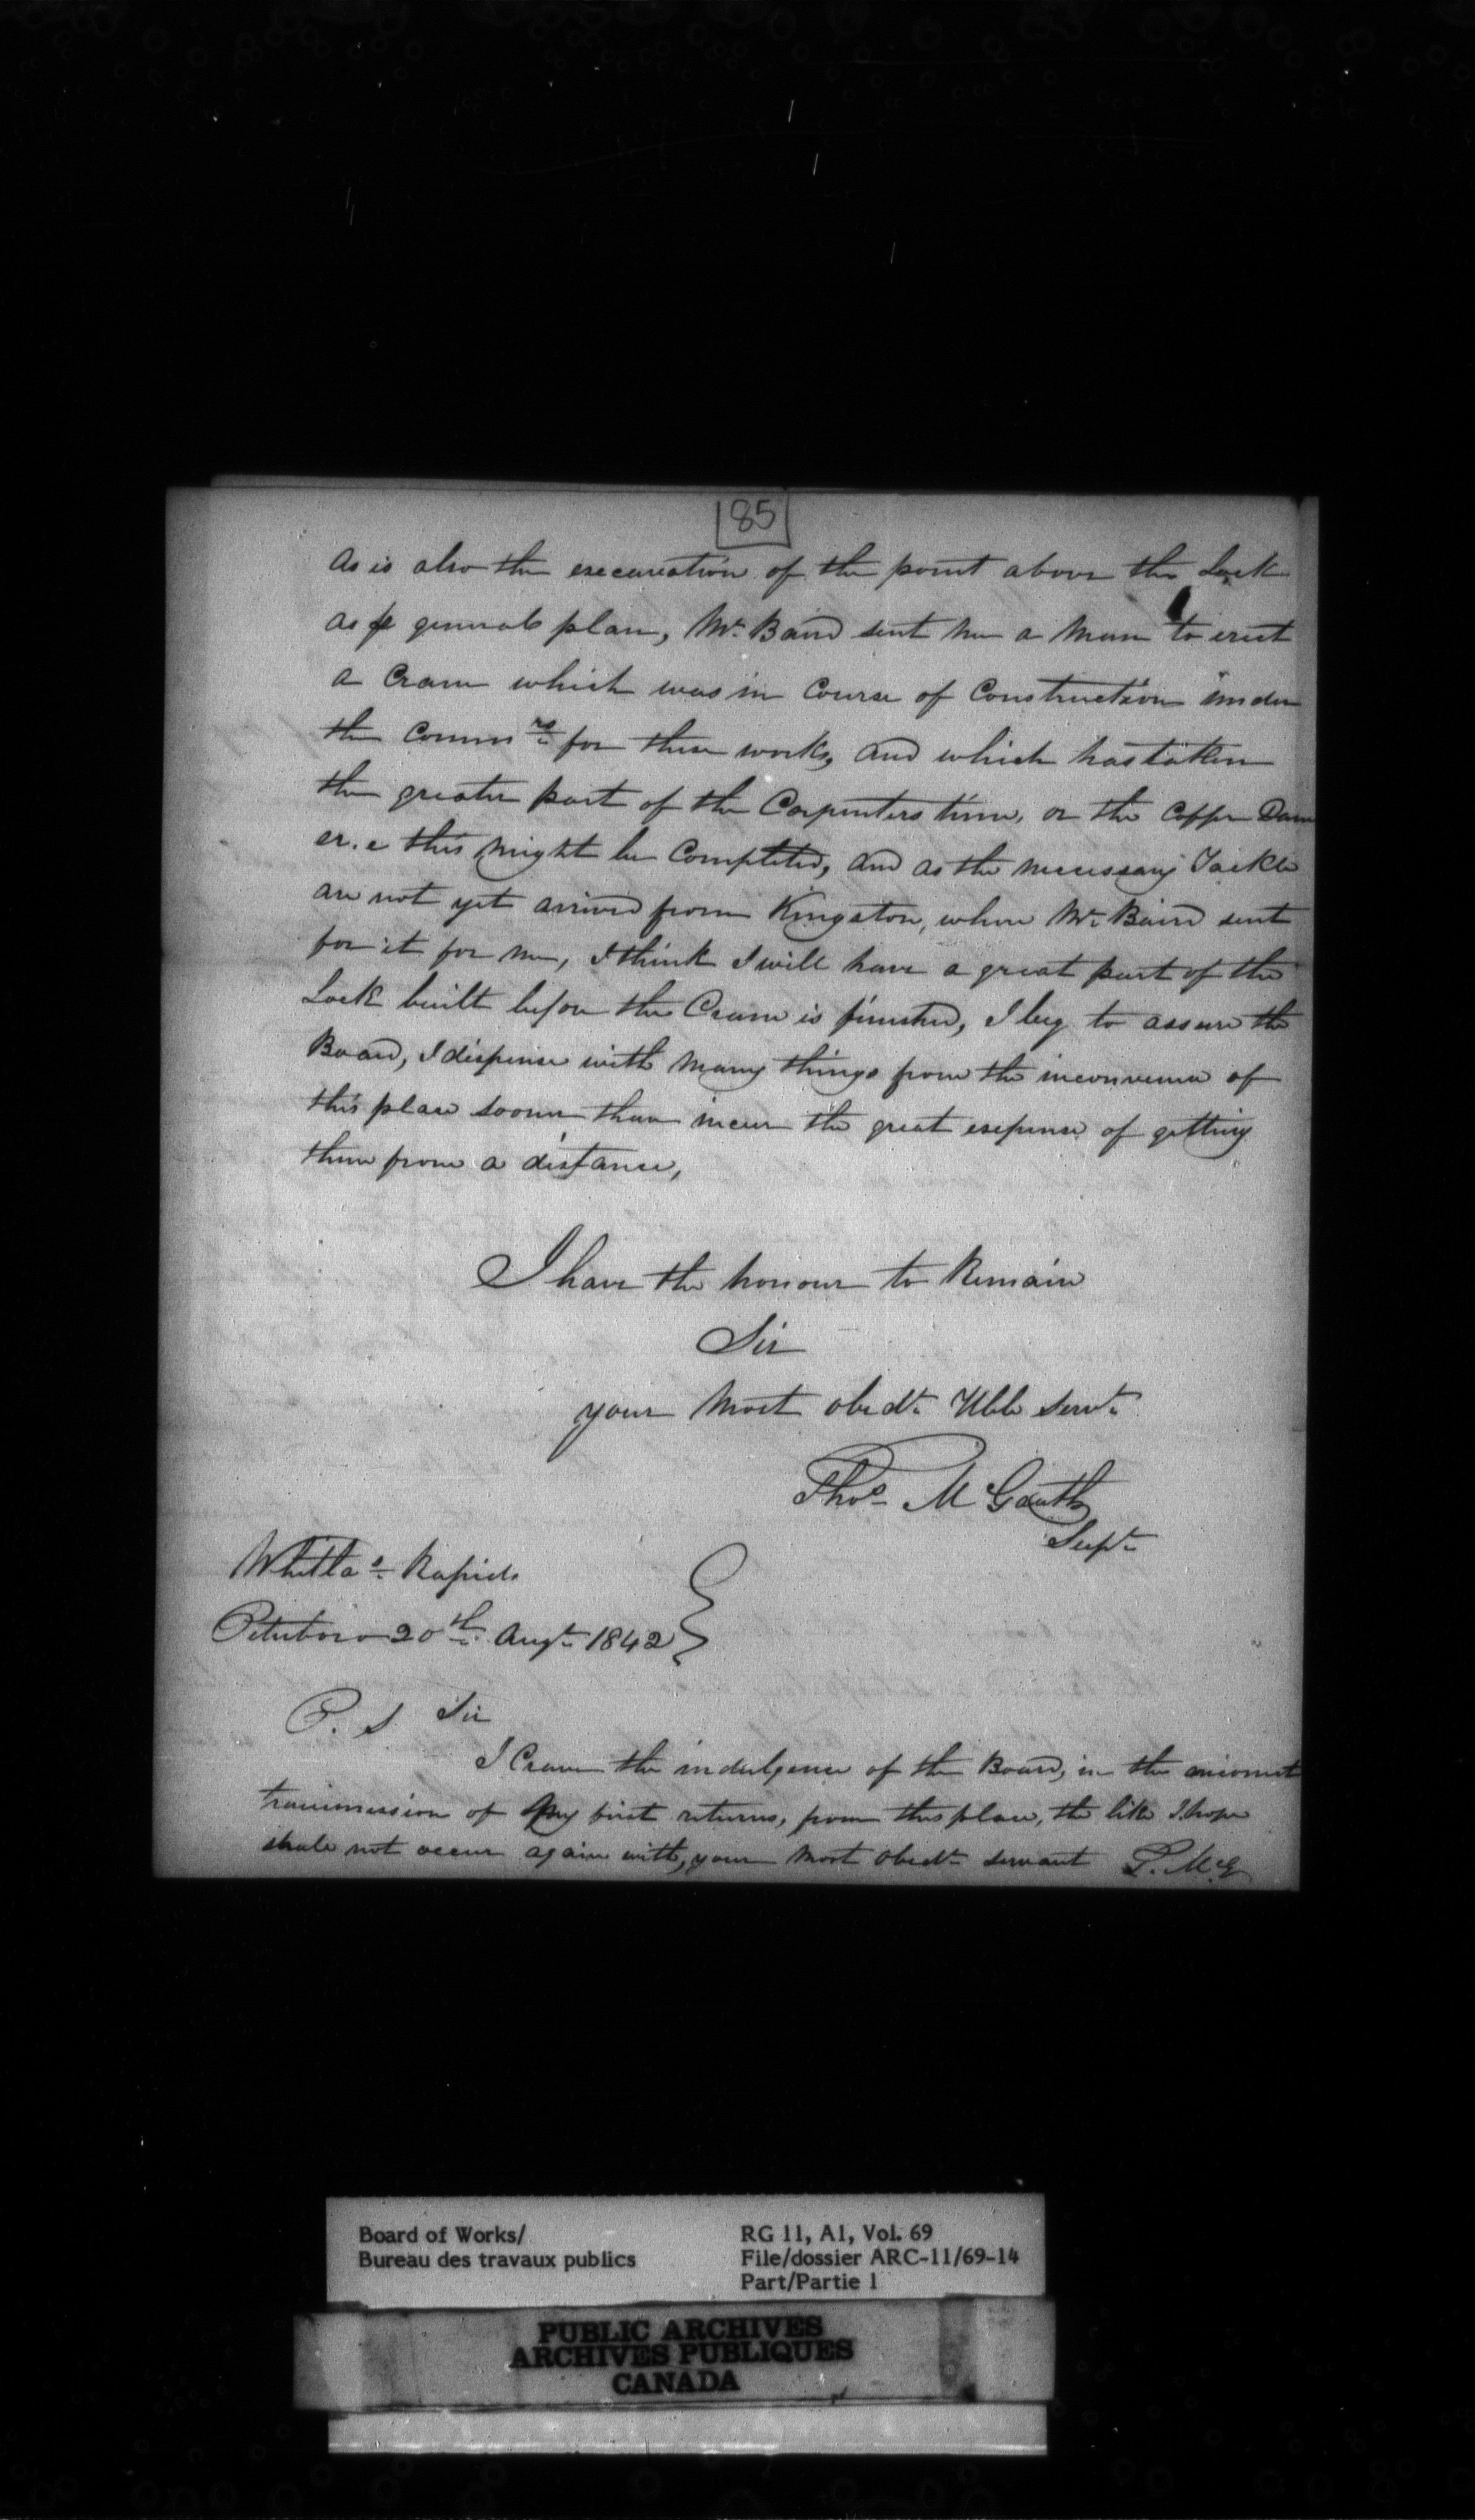 85
As is also the excavation of the point above the Lock
as ⅌ general plan, Mr. Baird sent me a Man to erect
a Crane which was in Course of Construction under
the Commrs for these works, and which has taken
the greater part of the Carpenters time, or the Coffer Dam
er.e this might be Completed, and as the necessary Tackle
are not yet arrived from Kingston, where Mr. Baird sent
for it for me, I think I will have a great part of the
Lock built before the Crane is finished, I beg to assure the
Board, I dispense with many things from the inconvenience of
this place sooner than incur the great expense of getting
them from a distance,
I have the honour to Remain
Sir
your Most obedt. Hble Servt.
Thos. McGrath
Supt.
Whitla's Rapids
Peterboro 20th Augt. 1842
P. S. Sir
I Crave the indulgence of the Board, in the
transmission of My first returns, from this place, the like I hope
shall not occur again with, your Most Obedt. servant T. McG
Board of Works/
Bureau des travaux publics
RG 11, A1, Vol. 69
File/dossier ARC-11/69-14
Part/Partie 1
PUBLIC ARCHIVES
ARCHIVES PUBLIQUES
CANADA